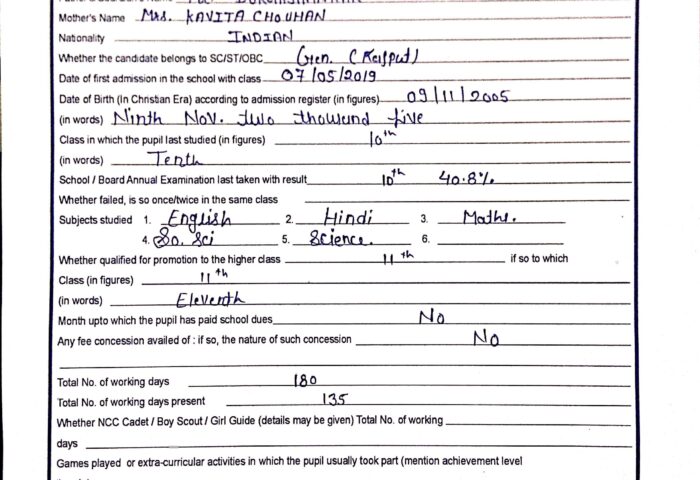 Mother's Name MRS. KAVITA CHOUHAN
Nationality INDIAN
Whether the candidate belongs to SC/ST/OBC Gen. (Rajput)
Date of first admission in the school with class 07/05/2019
Date of Birth (In Christian Era) according to admission register (in figures) 09/11/2005
(in words) Ninth Nov. two thousand five
Class in which the pupil last studied (in figures) 10th
(in words) Tenth
School / Board Annual Examination last taken with result 10th 40.8%
Whether failed, is so once/twice in the same class
Subjects studied 1. English 2. Hindi 3. Maths.
4. So. Sci 5. Science. 6.
Whether qualified for promotion to the higher class 11th if so to which
Class (in figures) 11th
(in words) Eleventh
Month upto which the pupil has paid school dues No
Any fee concession availed of : if so, the nature of such concession No
Total No. of working days 180
Total No. of working days present 135
Whether NCC Cadet / Boy Scout / Girl Guide (details may be given) Total No. of working
days
Games played or extra-curricular activities in which the pupil usually took part (mention achievement level